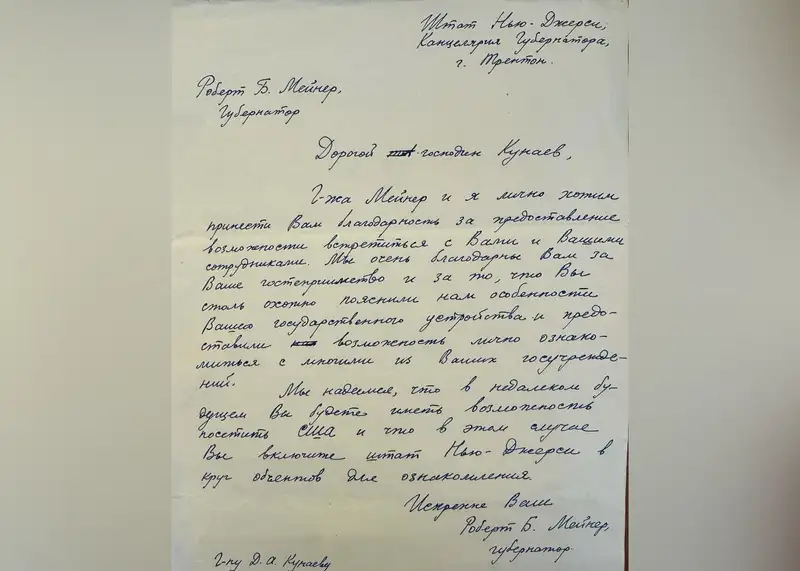 Штат Нью-Джерси,
Канцелярия Губернатора,
г. Трентон.
Роберт Б. Мейнер,
Губернатор
Дорогой господин Кунаев,
Г-жа Мейнер и я лично хотим
принести Вам благодарность за предоставление
возможности встретиться с Вами и Вашими
сотрудниками. Мы очень благодарны Вам за
Ваше гостеприимство и за то, что Вы
столь охотно пояснили нам особенности
Вашего государственного устройства и предо-
ставили возможность лично ознако-
миться с многими из Ваших госучрежде-
ний.
Мы надеемся, что в недалеком бу-
дущем Вы будете иметь возможность
посетить США и что в этом случае
Вы включите штат Нью-Джерси в
круг объектов для ознакомления.
Искренне Ваш
Роберт Б. Мейнер,
губернатор.
Г-ну Д. А. Кунаеву